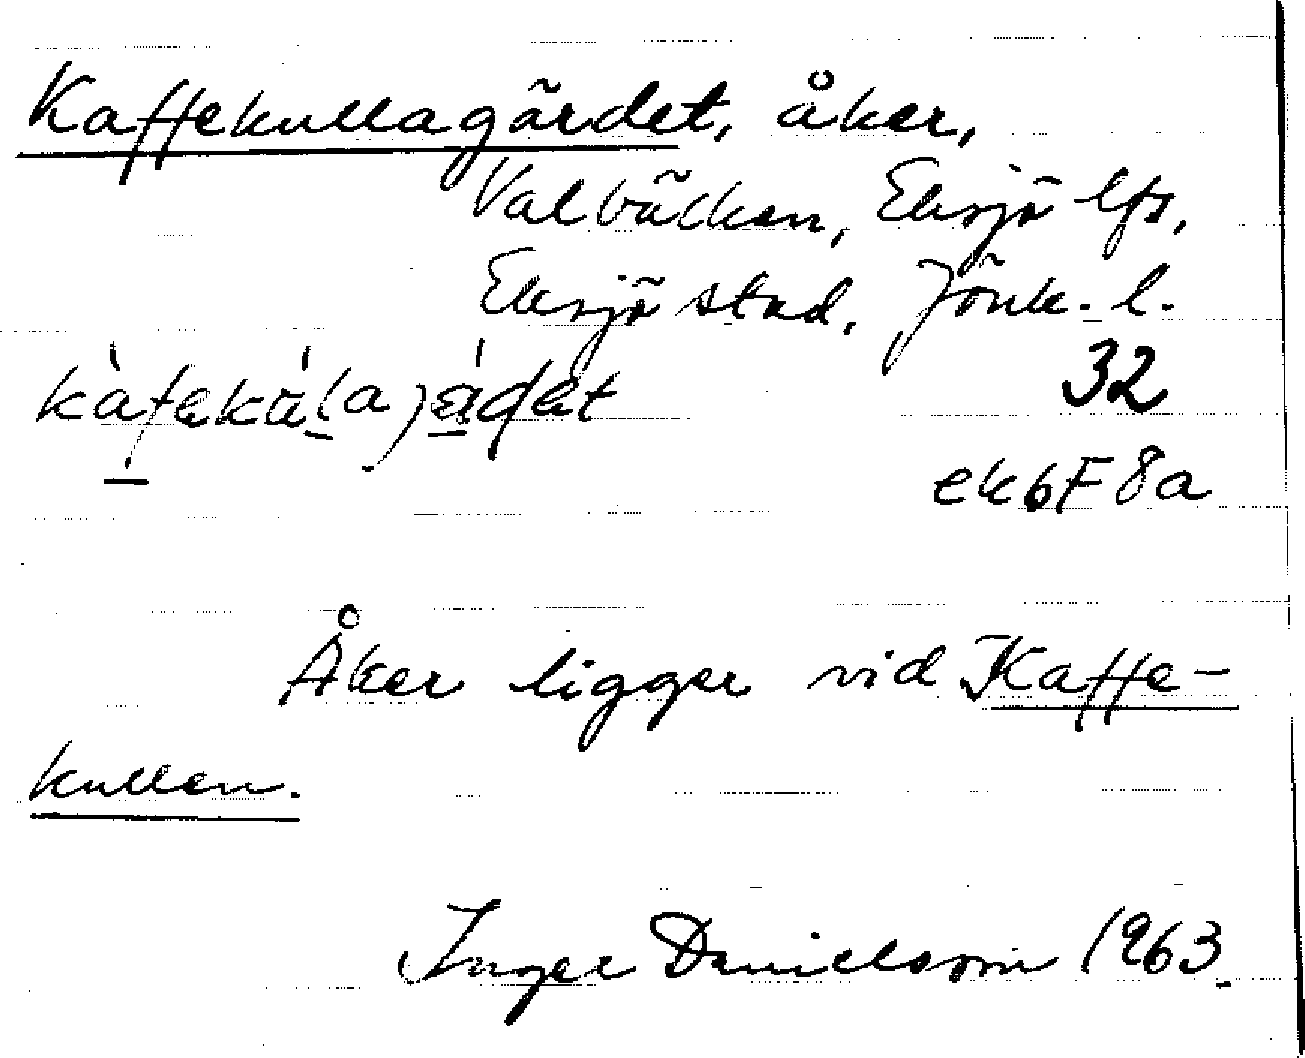 Kaffekullagärdet, åker,
Valbäcken, Eksjö lfs,
Eksjö stad, Jönk. l.
32
ek 6F 8a
Åker ligger vid Kaffe-
kullen.
Inger Danielsson 1963